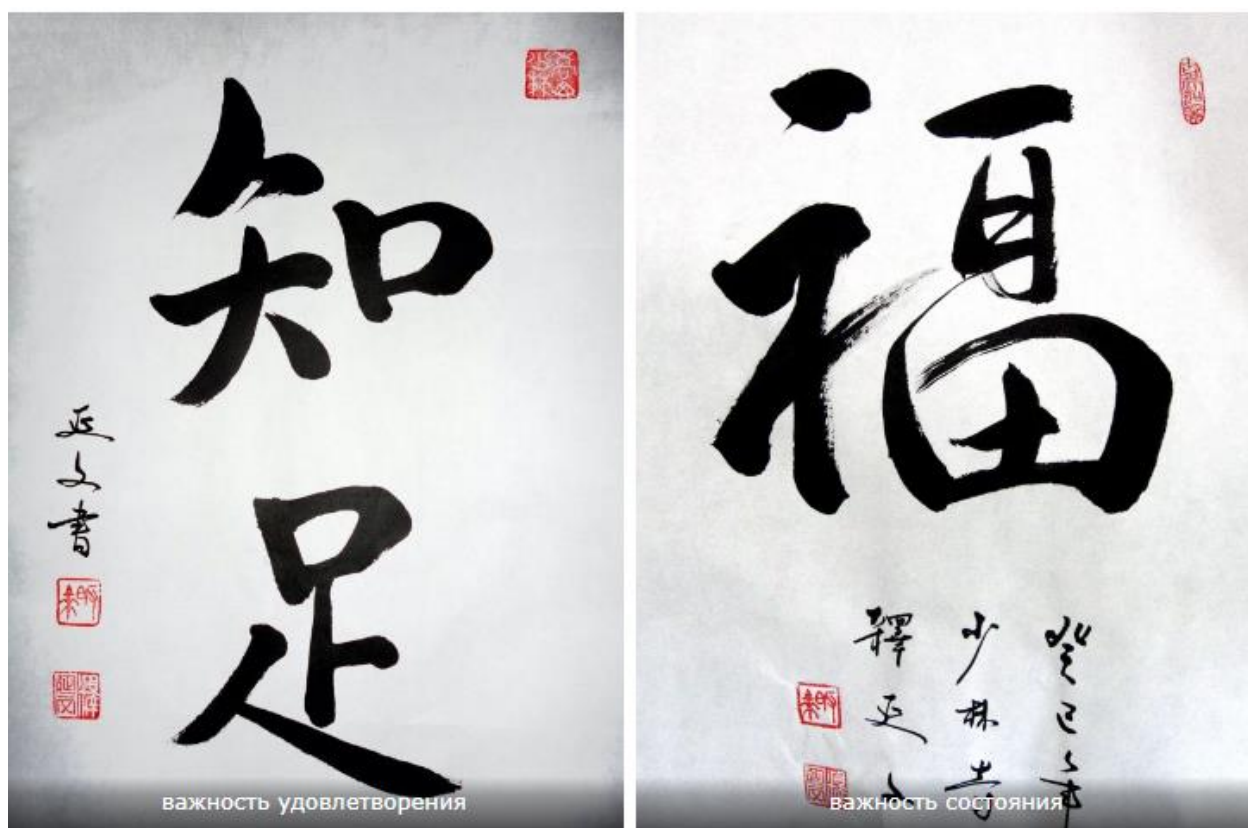 知足
延文書
важность удовлетворения
福
癸巳年
少林寺
釋延文
важность состояния